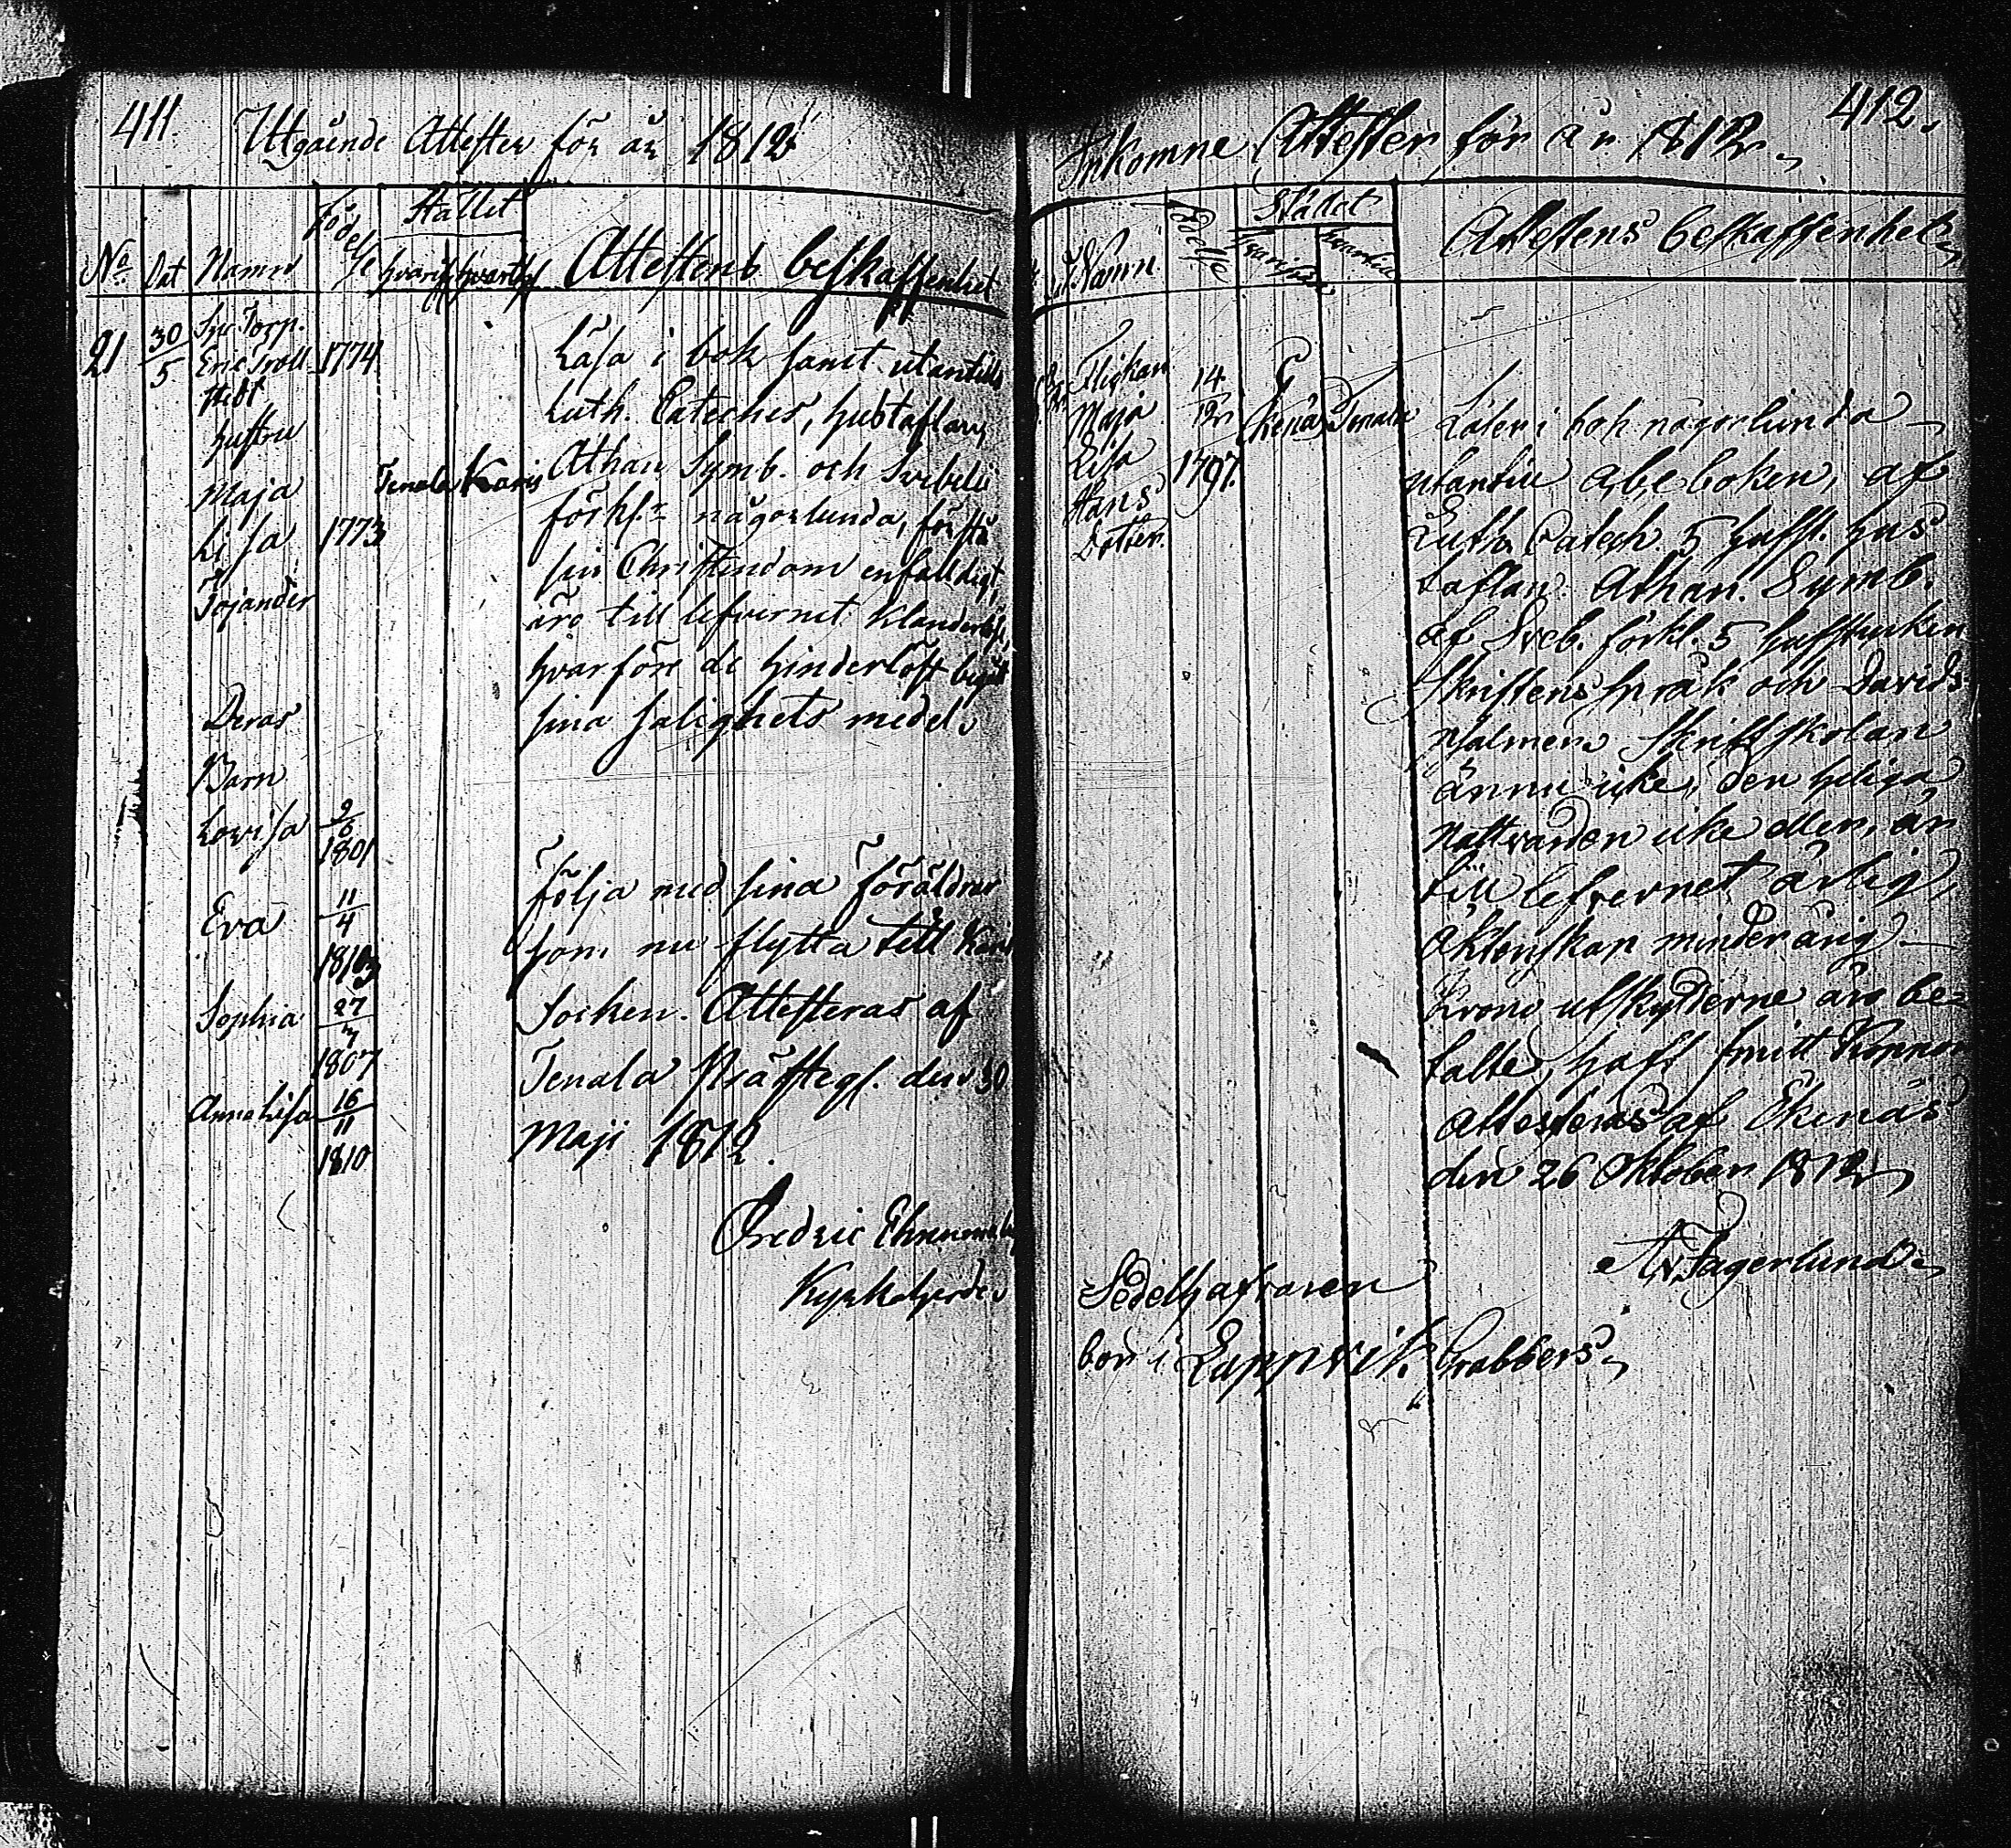 411.
Utgående Attester för år 1812
Stället
Födelse
No. Dat Namn hvarif hvartill Attestens beskaffenhet
21 30/5 Torp. Eric 1774
hustru
Maja
Lisa 1773
Tojander
Tenala Karis
Läsa i bok samt utantill
Luth. Cateches, hustaflan,
Athan. Symb. och Svebelii
förkl. någorlunda, förstå
sin Christendom enfalldigt,
äro till lefvernet klanderlöse,
hvarföre de hinderlöst begått
sina salighets medel.
Deras
Barn
Lovisa 9/6
1801
Eva 11/4
Sophia 27/7
1807
Anna Lisa 16/11
1810
följa med sina föräldrar
som nu flytta till Karis
Socken. Attesteras af
Tenala Prästegl. den 30
Maji 1812.
Fredric
Kyrkoherde.
412.
Inkomne Attester för år 1812.
Stället
Namn Födelse Attestens beskaffenhet
Flickan
Maja
Lisa
Hans
Dotter.
14/12
1797.
Ekenäs Tenala
Läser i bok någorlunda
utantill abc boken, af
Luth. Catech. 5 hufst. hus
taflan. Athan. Symb.
af Sveb. förkl. 5 hufstycken
Skriftens språk och Davids
psalmer. Skriftskolan
ännu icke, den heliga
Nattvarden icke eller, är
till lefvernet ärlig,
Äktenskap minderårig.
Krono utskylderne äro be-
talte, haft Koppor
attesteras af Ekenäs
den 26 Oktober 1812.
Fagerlund.
Sedelhafvaren
bor i Lappvik Grabbers.